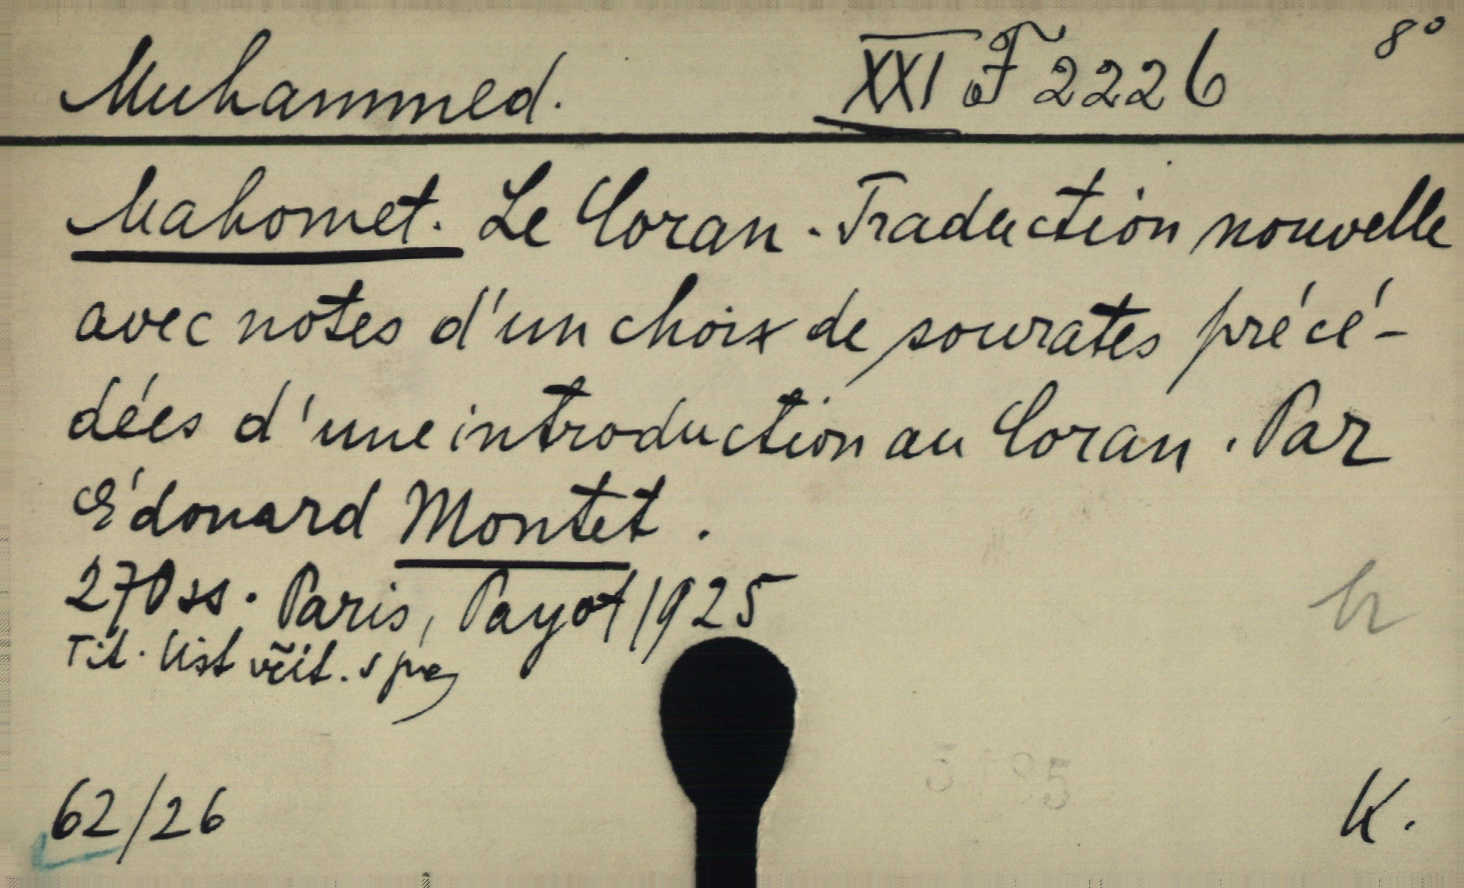 Muhammed. XXI F 2226 8°
Mahomet. Le Coran. Traduction nouvelle
avec notes d'un choix de sourates précé-
dées d'une introduction au Coran. Par
Édouard Montet.
270 ss. Paris, Payot 1925
Tit. list
62/26 K.